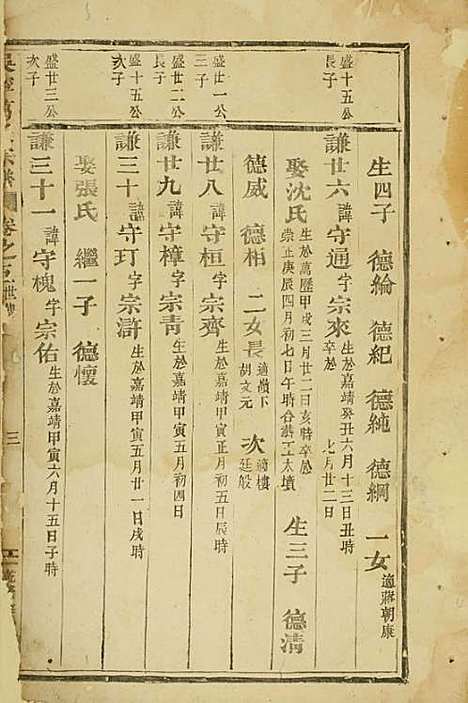 生四子 德綸 德紀 德純 德綱 一女適蔣朝康
盛十五公長子
謙廿六諱守通字宗來生於嘉靖癸丑六月十三日丑時卒於 七月廿二日
娶沈氏生於萬歷甲戌三月廿二日亥時卒於崇正庚辰四月初七日午時合葬工木墳 生三子 德清
德威 德相 二女長適嶺下胡文元 次適樓廷般
盛廿一公三子
謙廿八諱守桓字宗齊生於嘉靖甲寅正月初五日辰時
盛廿二公長子
謙廿九諱守樟字宗靑生於嘉靖甲寅五月初四日
盛十五公次子
謙三十諱守玎字宗滸生於嘉靖甲寅五月廿一日戌時
娶張氏 繼一子 德懷
盛廿三公次子
謙三十一諱守槐字宗佑生於嘉靖甲寅六月十五日子時
卷之
三